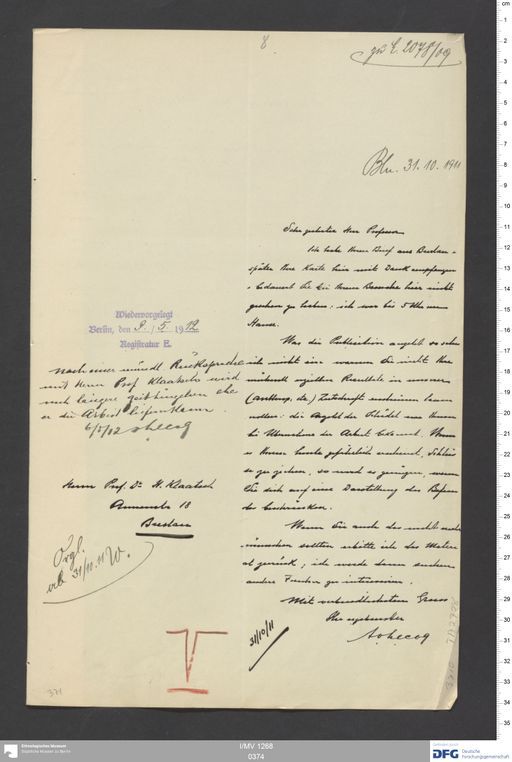 8
zu E. 2078/09
Bln. 31.10.1911
Sehr geehrter Herr Professor
Ich habe Ihren Brief aus Breslau u.
später Ihre Karte hier mit Dank empfangen
u. bedauert Sie bei Ihrem Besuche hier nicht
gesehen zu haben; ich war bis 5 Uhr im
Hause.
Was die Publication angeht so sehe
ich nicht ein warum Sie nicht Ihre
Resultate in unserer
Zeitschrift erscheinen lassen
wollen: die Anzahl der Schädel war Ihnen
bei Übernahme der Arbeit bekannt. Wenn
es Ihnen heute erscheint, Schlüsse
zu ziehen, so wird es genügen, wenn
Sie sich auf eine Darstellung des Befun-
des beschränken.
Wenn Sie auch das nicht mehr
wünschen sollten erbitte ich das Material
zurück; ich werde dann suchen
andere Forscher zu interessieren.
Mit verbindlichstem Gruss
Ihr ergebenster
Av. Lecoq
31/10/11
Wiedervorgelegt
Berlin, den 9./5 1912
Registratur E.
nach einer mündl. Rücksprache
mit Herrn Prof Klaatsch wird
noch längere Zeit hingehen ehe
er die Arbeit liefern kann.
6/5/12 v. Lecoq
Herrn Prof. Dr. H. Klaatsch
18
Breslau
Orgl.
ab 31/10.11 W.
371
I/MV 1268
0374
Ethnologisches Museum
Staatliche Museen zu Berlin
DFG Deutsche
Forschungsgemeinschaft